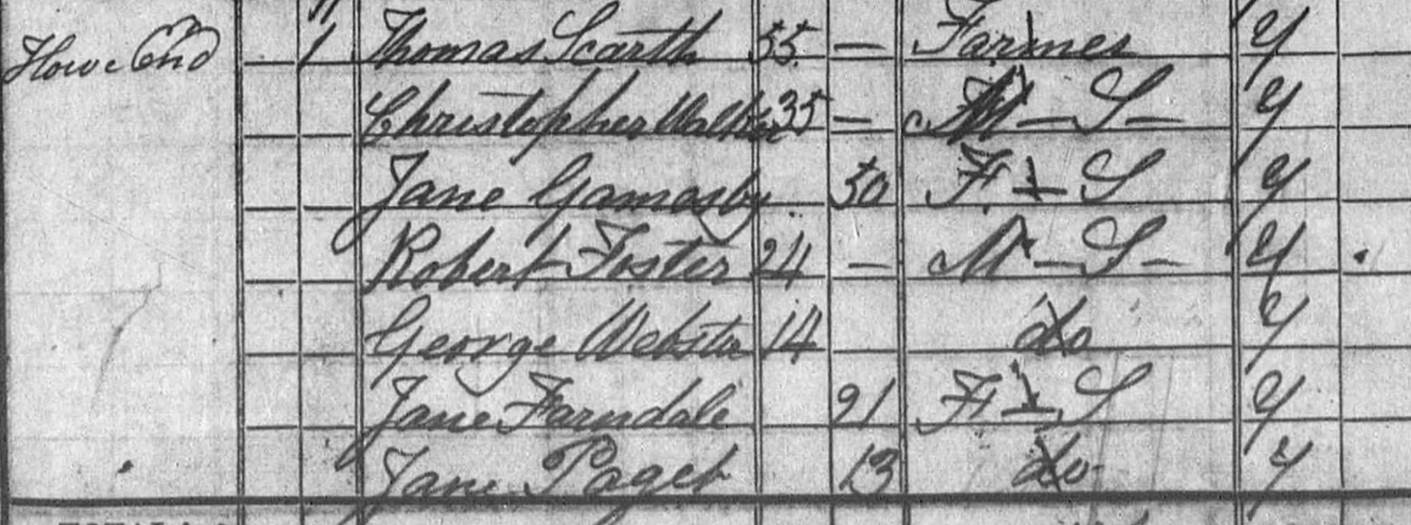 Howe End 1 Thomas Scarth 55 — Farmer Y
Christopher Walker 35 — M – S – Y
Jane Gamesby 50 F – S Y
Robert Foster 24 — M – S – Y
George Webster 14 do Y
Jane Farndale 21 F – S Y
Jane Paget 13 do Y